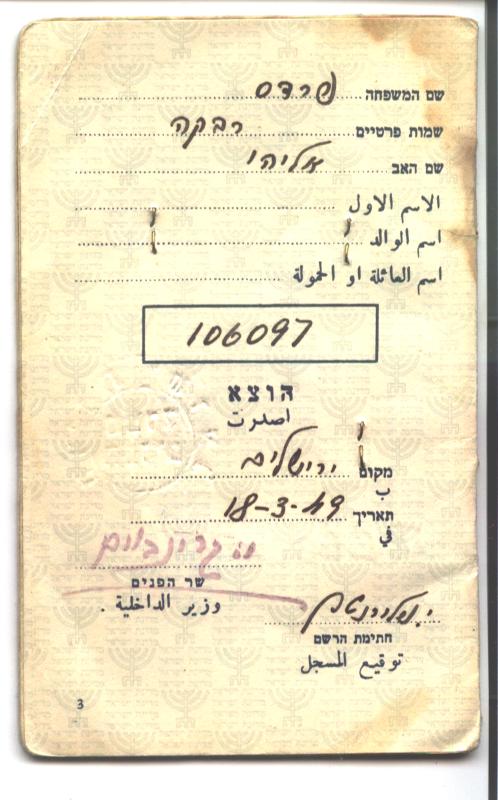 שם המשפחה פרדס
שמות פרטיים רבקה
שם האב אליהו
الاسم الاول
اسم الوالد
اسم العائلة او الحمولة
106097
הוצא
اصدرت
מקום ירושלים
ب
תאריך 18-3-49
في
גרינבוים
שר הפנים
وزير الداخلية .
חתימת הרשם
توقيع المسجل
3